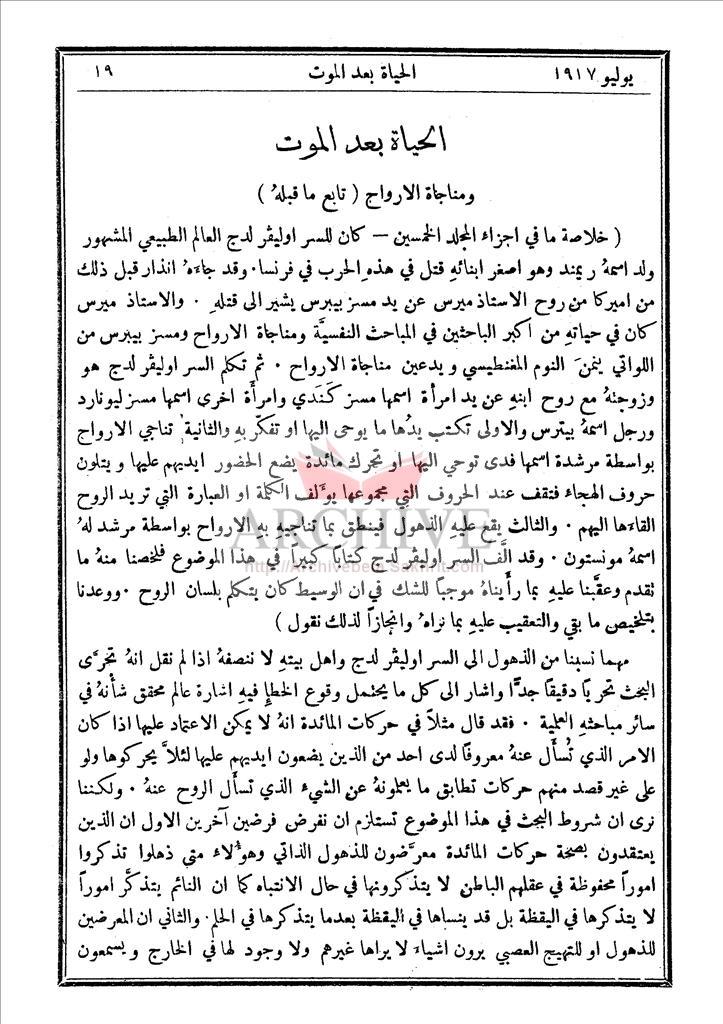 يوليو ١٩١٧ الحياة بعد الموت ١٩
الحياة بعد الموت
ومناجاة الارواح ( تابع ما قبلهُ )
( خلاصة ما في اجزاء المجلد الخمسين – كان للسر اوليڤر لدج العالم الطبيعي المشهور
ولد اسمهُ ريمند وهو اصغر ابنائهِ قتل في هذهِ الحرب في فرنسا. وقد جاءهُ انذار قبل ذلك
من اميركا من روح الاستاذ ميرس عن يد مسز بيبرس يشير الى قتلهِ . والاستاذ ميرس
كان في حياتهِ من اكبر الباحثين في المباحث النفسيَّة ومناجاة الارواح ومسز بيبرس من
اللواتي ينمنَ النوم المغنطيسي ويدعين مناجاة الارواح . ثم تكلم السر اوليڤر لدج هو
وزوجتهُ مع روح ابنهِ عن يد امرأة اسمها مسز كَنَدي وامرأة اخرى اسمها مسز ليونارد
ورجل اسمهُ بيترس والاولى تكتب يدُها ما يوحى اليها او تفكّر بهِ والثانية تناجي الارواح
بواسطة مرشدة اسمها فدى توحي اليها او تحرك مائدة يضع الحضور ايديهم عليها ويتلون
حروف الهجاء فتقف عند الحروف التي مجموعها يؤلف الكلمة او العبارة التي تريد الروح
القاءها اليهم . والثالث يقع عليهِ الذهول فينطق بما تناجيهِ بهِ الارواح بواسطة مرشد لهُ
ARCHIVE
اسمهُ مونستون . وقد الَّف السر اوليڤر لدج كتاباً كبيراً في هذا الموضوع فلخصنا منهُ ما
http://Archivebeta.Sakhrit.com
تقدم وعقَّبنا عليهِ بما رأيناهُ موجباً للشك في ان الوسيط كان يتكلم بلسان الروح . ووعدنا
بتلخيص ما بقي والتعقيب عليهِ بما نراهُ وانجازاً لذلك نقول )
مهما نسبنا من الذهول الى السر اوليڤر لدج واهل بيتهِ لا ننصفهُ اذا لم نقل انهُ تحرَّى
البحث تحرياً دقيقاً جدًّا واشار الى كل ما يحتمل وقوع الخطإِ فيهِ اشارة عالم محقق شأنهُ في
سائر مباحثهِ العلمية . فقد قال مثلاً في حركات المائدة انهُ لا يمكن الاعتماد عليها اذا كان
الامر الذي تُسأَل عنهُ معروفاً لدى احد من الذين يضعون ايديهم عليها لئلاَّ يحركوها ولو
على غير قصد منهم حركات تطابق ما يعلمونهُ عن الشيء الذي تسأَل الروح عنهُ . ولكننا
نرى ان شروط البحث في هذا الموضوع تستلزم ان نفرض فرضين آخرين الاول ان الذين
يعتقدون بصحة حركات المائدة معرَّضون للذهول الذاتي وهؤلاء متى ذهلوا تذكروا
اموراً محفوظة في عقلهم الباطن لا يتذكرونها في حال الانتباه كما ان النائم يتذكَّر اموراً
لا يتذكرها في اليقظة بل قد ينساها في اليقظة بعدما يتذكرها في الحلم. والثاني ان المعرضين
للذهول او للتهيج العصبي يرون اشياء لا يراها غيرهم ولا وجود لها في الخارج ويسمعون